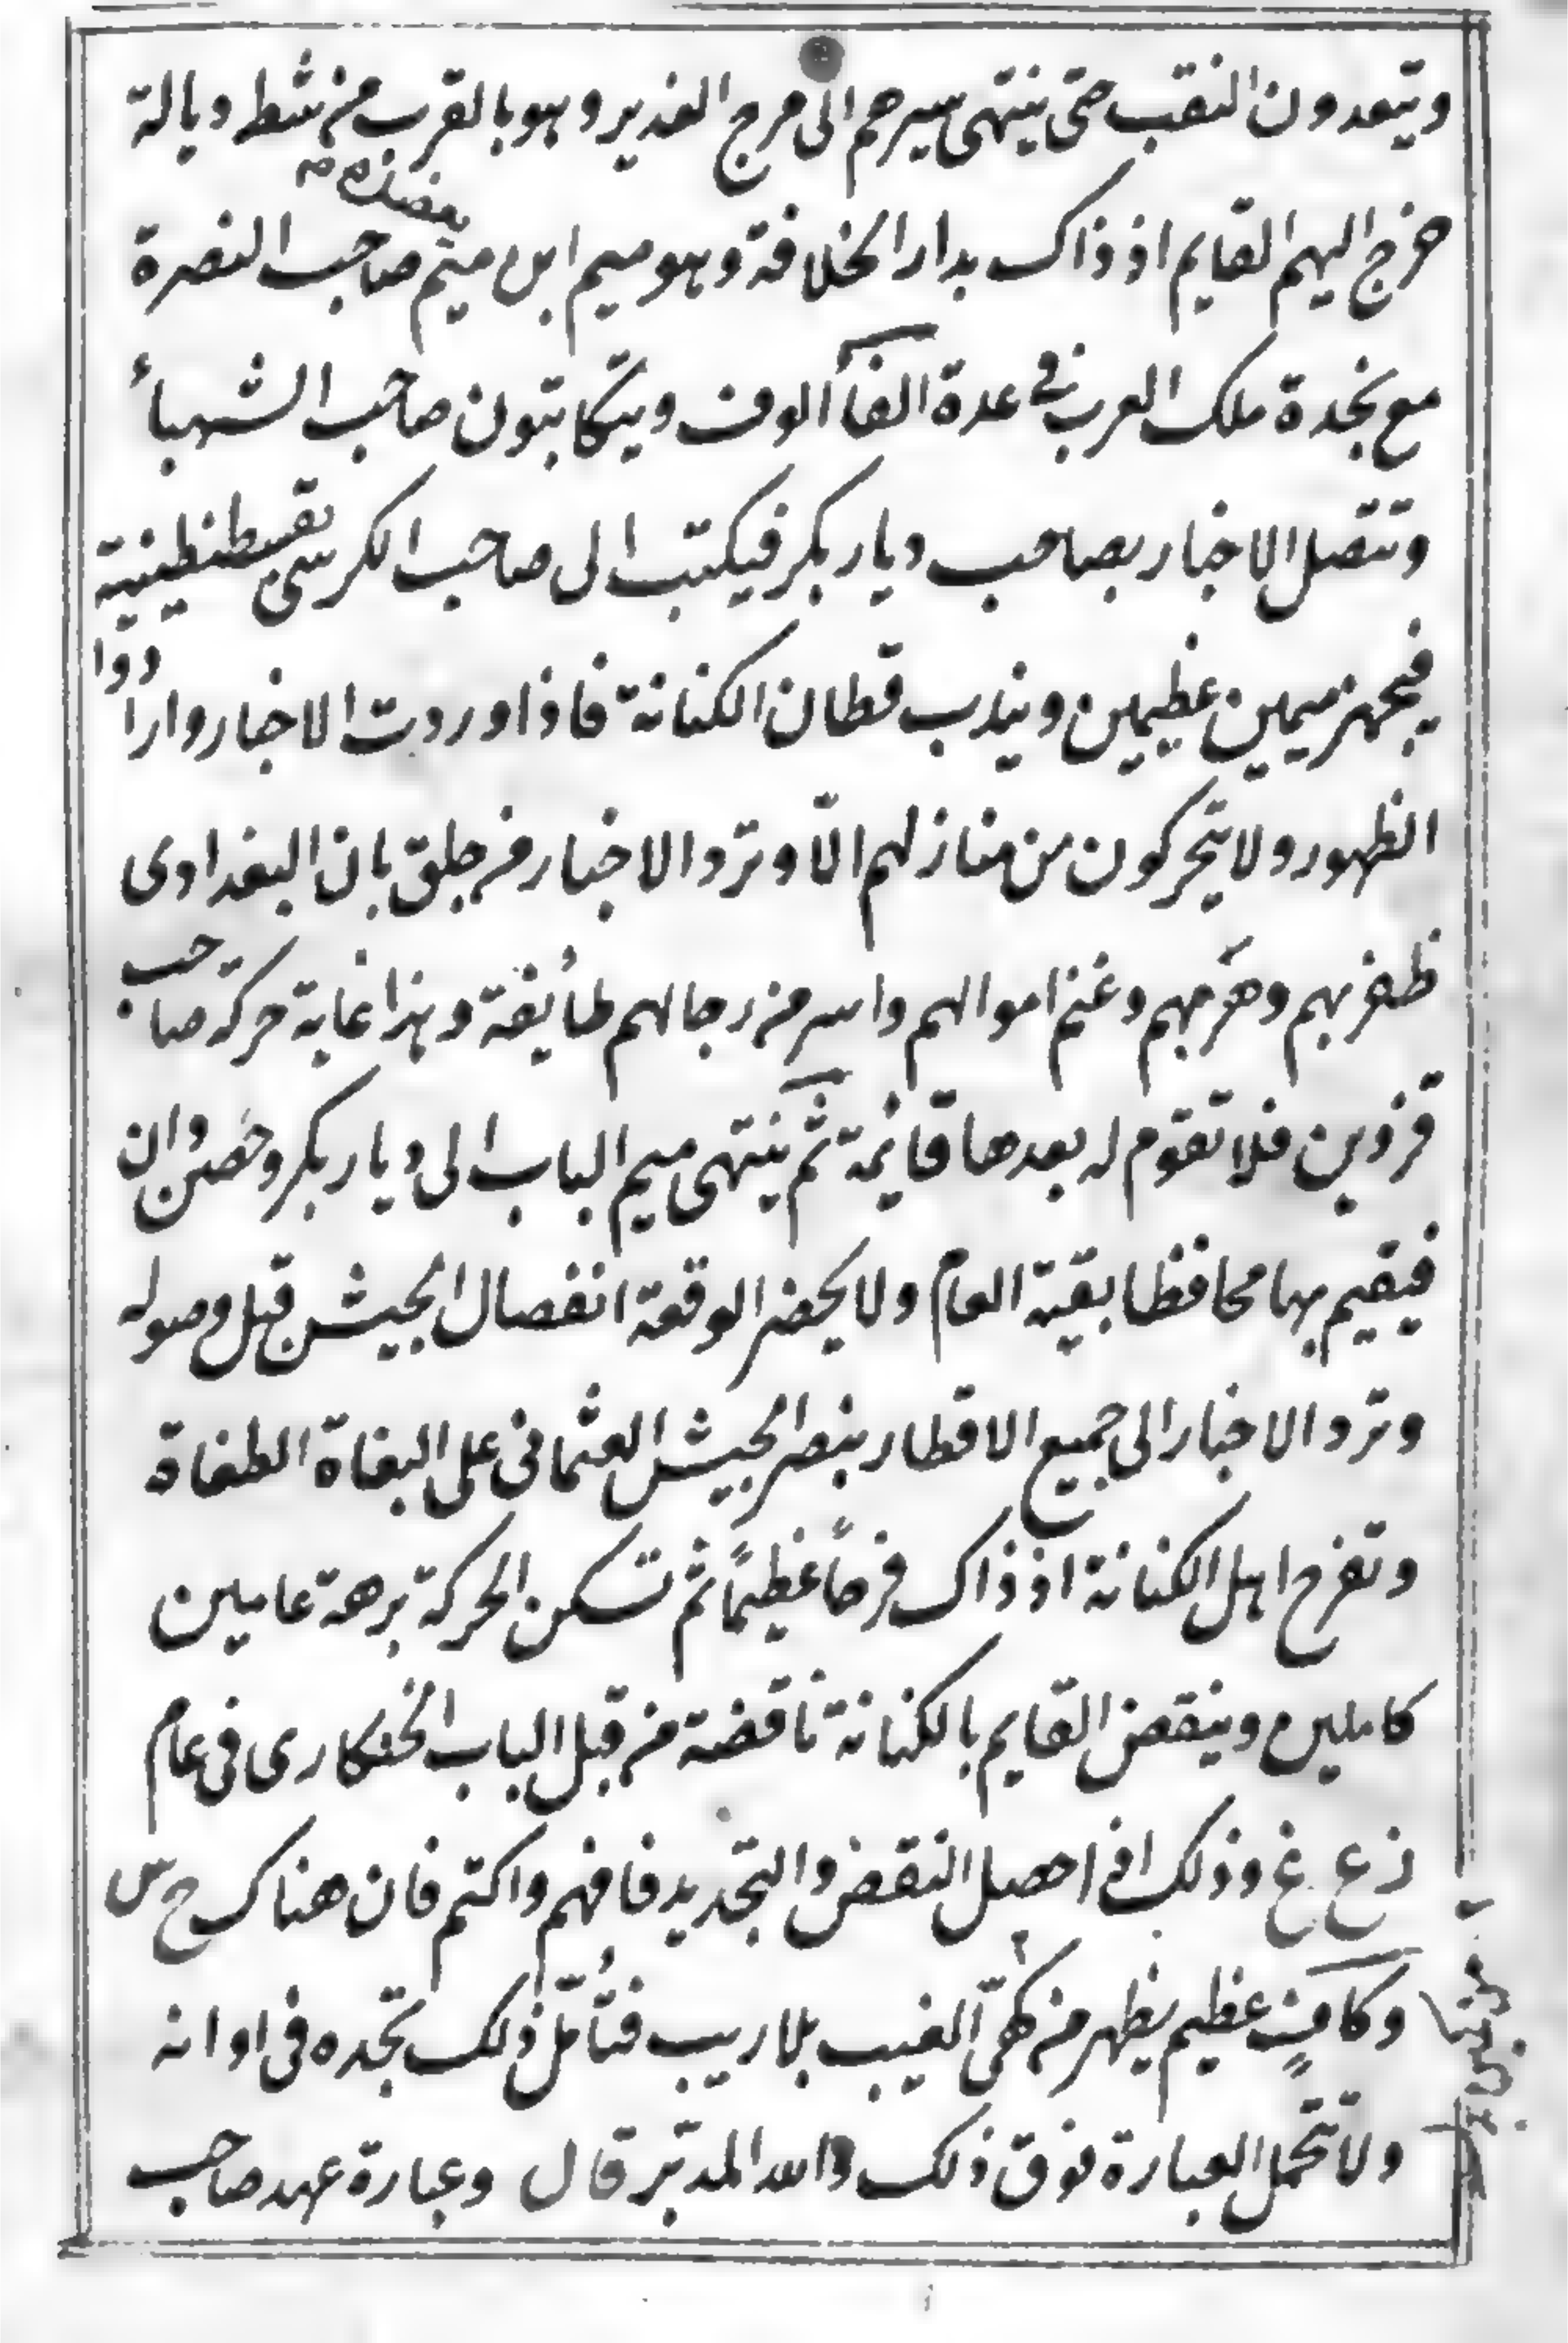 ويتعدون النقب حتى ينتهى سيرهم الى مرج الغدير وهو بالقرب من شط ديالة
خرج اليهم القايم اذ ذاك بدار الخلافة وهو ميم ابن ميم صاحب النصرة
مع نجدة ملك العرب فى عدة الفاً الوف ويتكاتبون صاحب الشهباء
وتتصل الاخبار بصاحب ديار بكر فيكتب الى صاحب الكرسى بقسطنطينية
فيجهز ميمين عظيمين ويندب قطان الكنانة فاذا وردت الاخبار وارادوا
الظهور ولا يتحركون من منازلهم الّا وترد الاخبار من جلق بان البغدادى
ظفر بهم وهزمهم وغنم اموالهم واسر من رجالهم طأيفة وهذا غاية حركة صاحب
قزوين فلا تقوم له بعدها قائمة ثم ينتهى ميم الباب الى ديار بكر وحصن وان
فيقيم بها محافظا بقية العام ولا يحضر الوقعة انفصال الجيش قبل وصوله
وترد الاخبار الى جميع الاقطار بنصر الجيش العثمانى على البغاة الطغاة
وتفرح اهل الكنانة اذ ذاك فرحاً عظيماً ثم تسكن الحركة برهة عامين
كاملين وينقض القايم بالكنانة ناقضة من قبل الباب الخنكارى فى عام
ذ ع غ وذلك اذا حصل النقض والتجديد فافهم واكتم فان هناك ح س
وكامن عظيم يظهر من الغيب بلا ريب فتأمّل ذلك تجده فى اوانه
ولا تتحمل العبارة فوق ذلك والله المدبّر قال وعبارة عهد صاحب